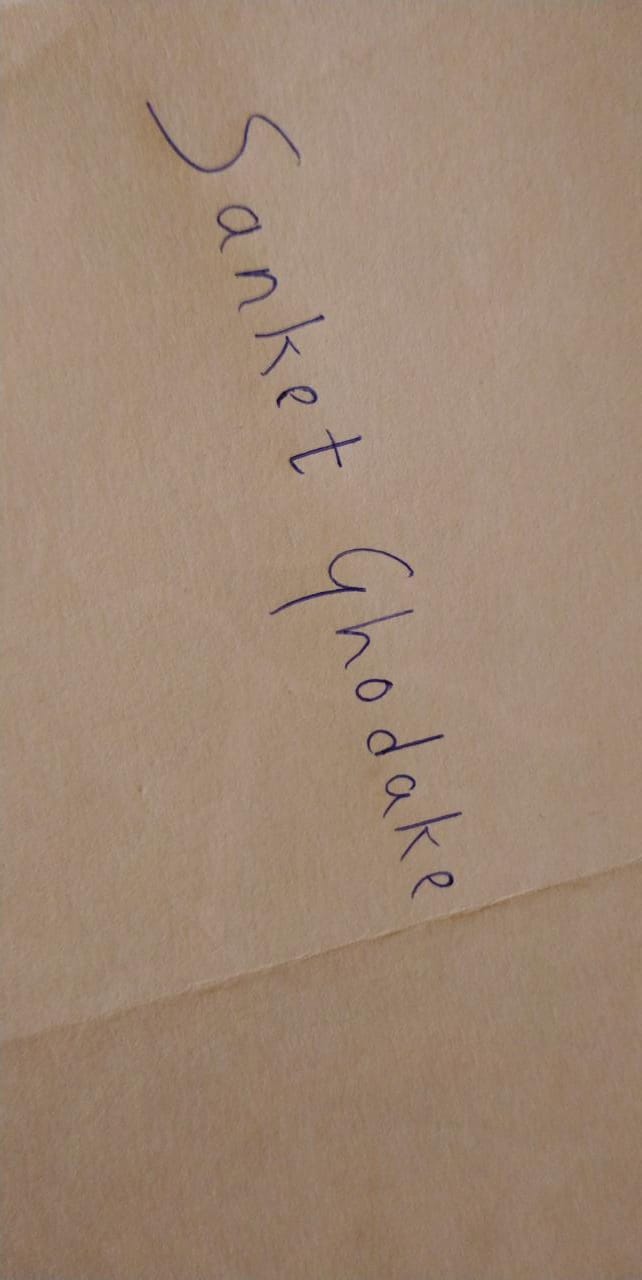 Sanket Ghodake